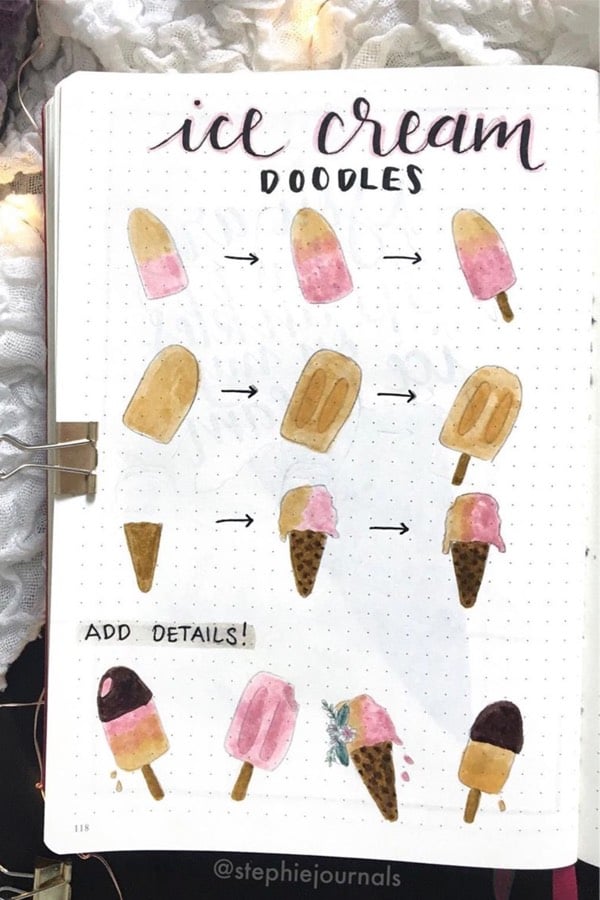 ice cream
DOODLES
ADD DETAILS!
118
@stephiejournals